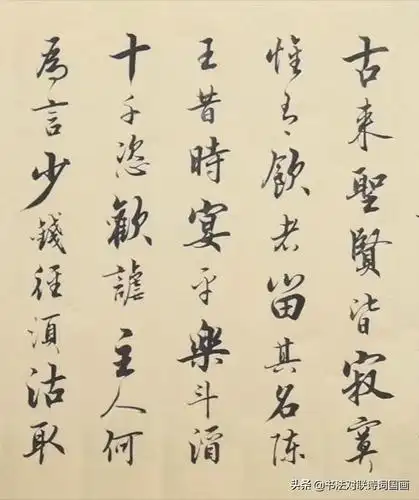 古来聖賢皆寂寞
惟有飲者留其名陳
王昔時宴平樂斗酒
十千恣歡謔主人何
為言少錢徑須沽取
头条 @书法对联诗词国画